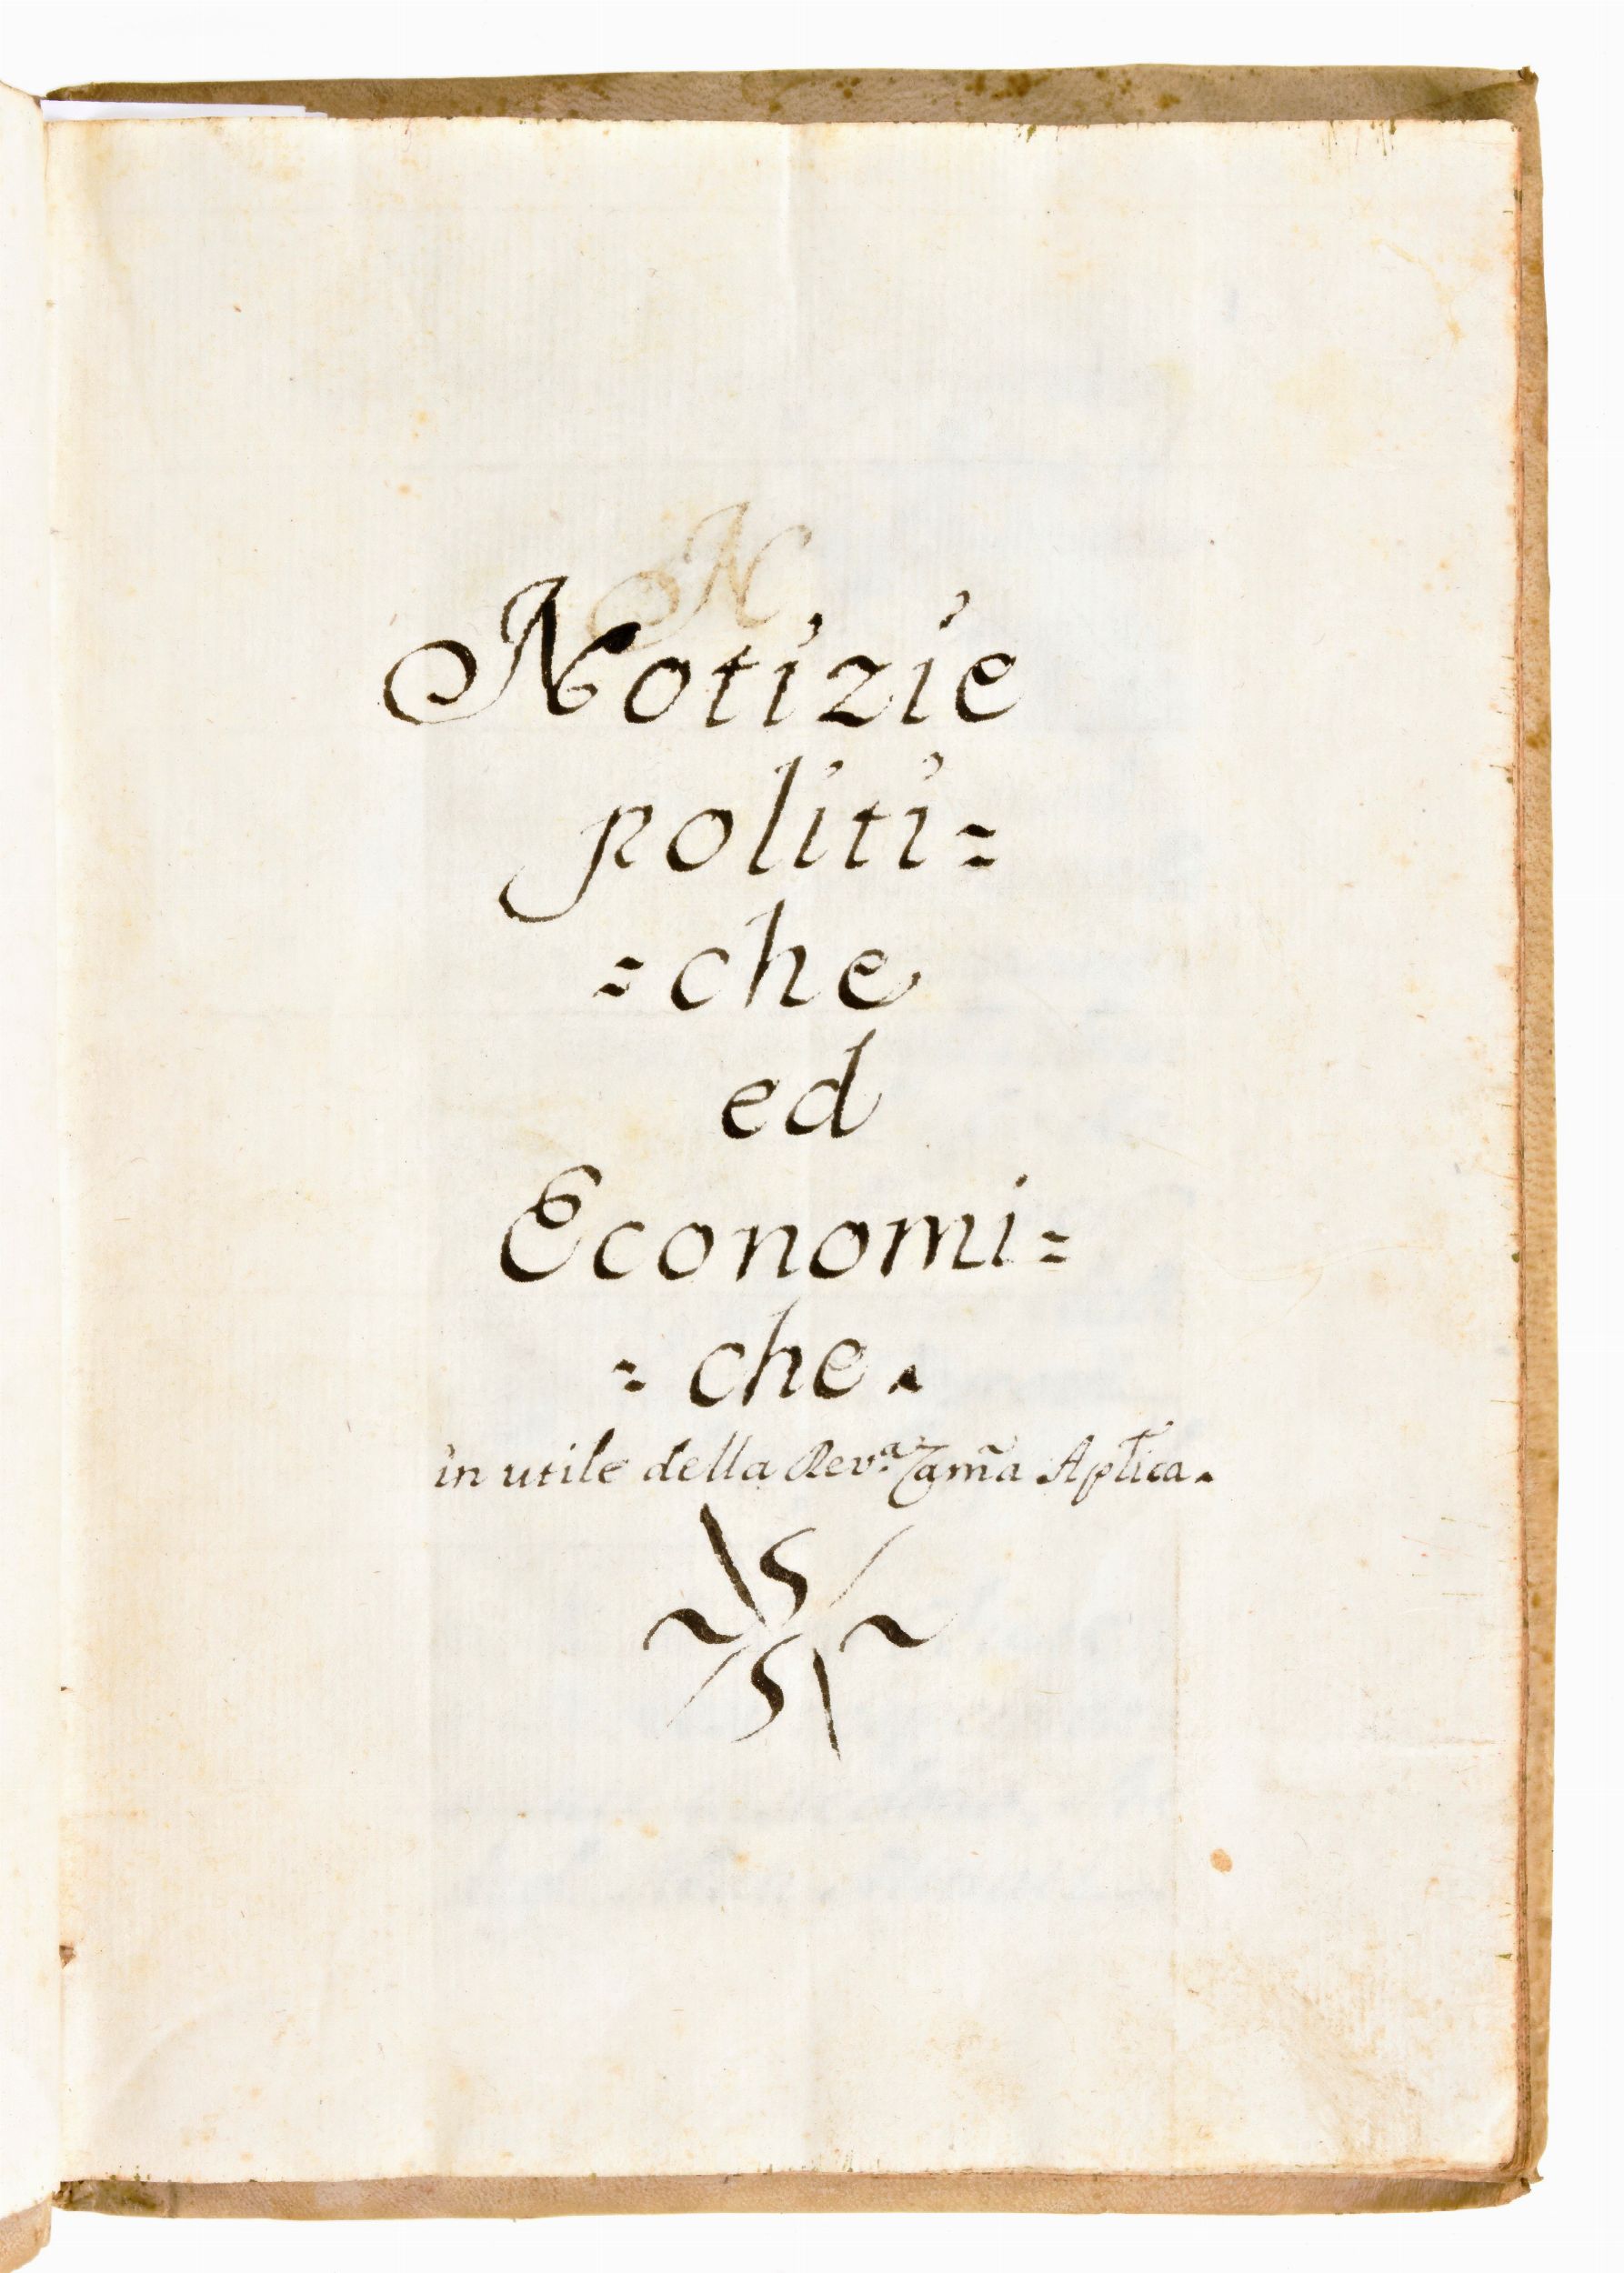 N
Notizie
politi=
=che
ed
Economi=
=che.
in utile della Rev.ª Cam̃a Apl̃ica.